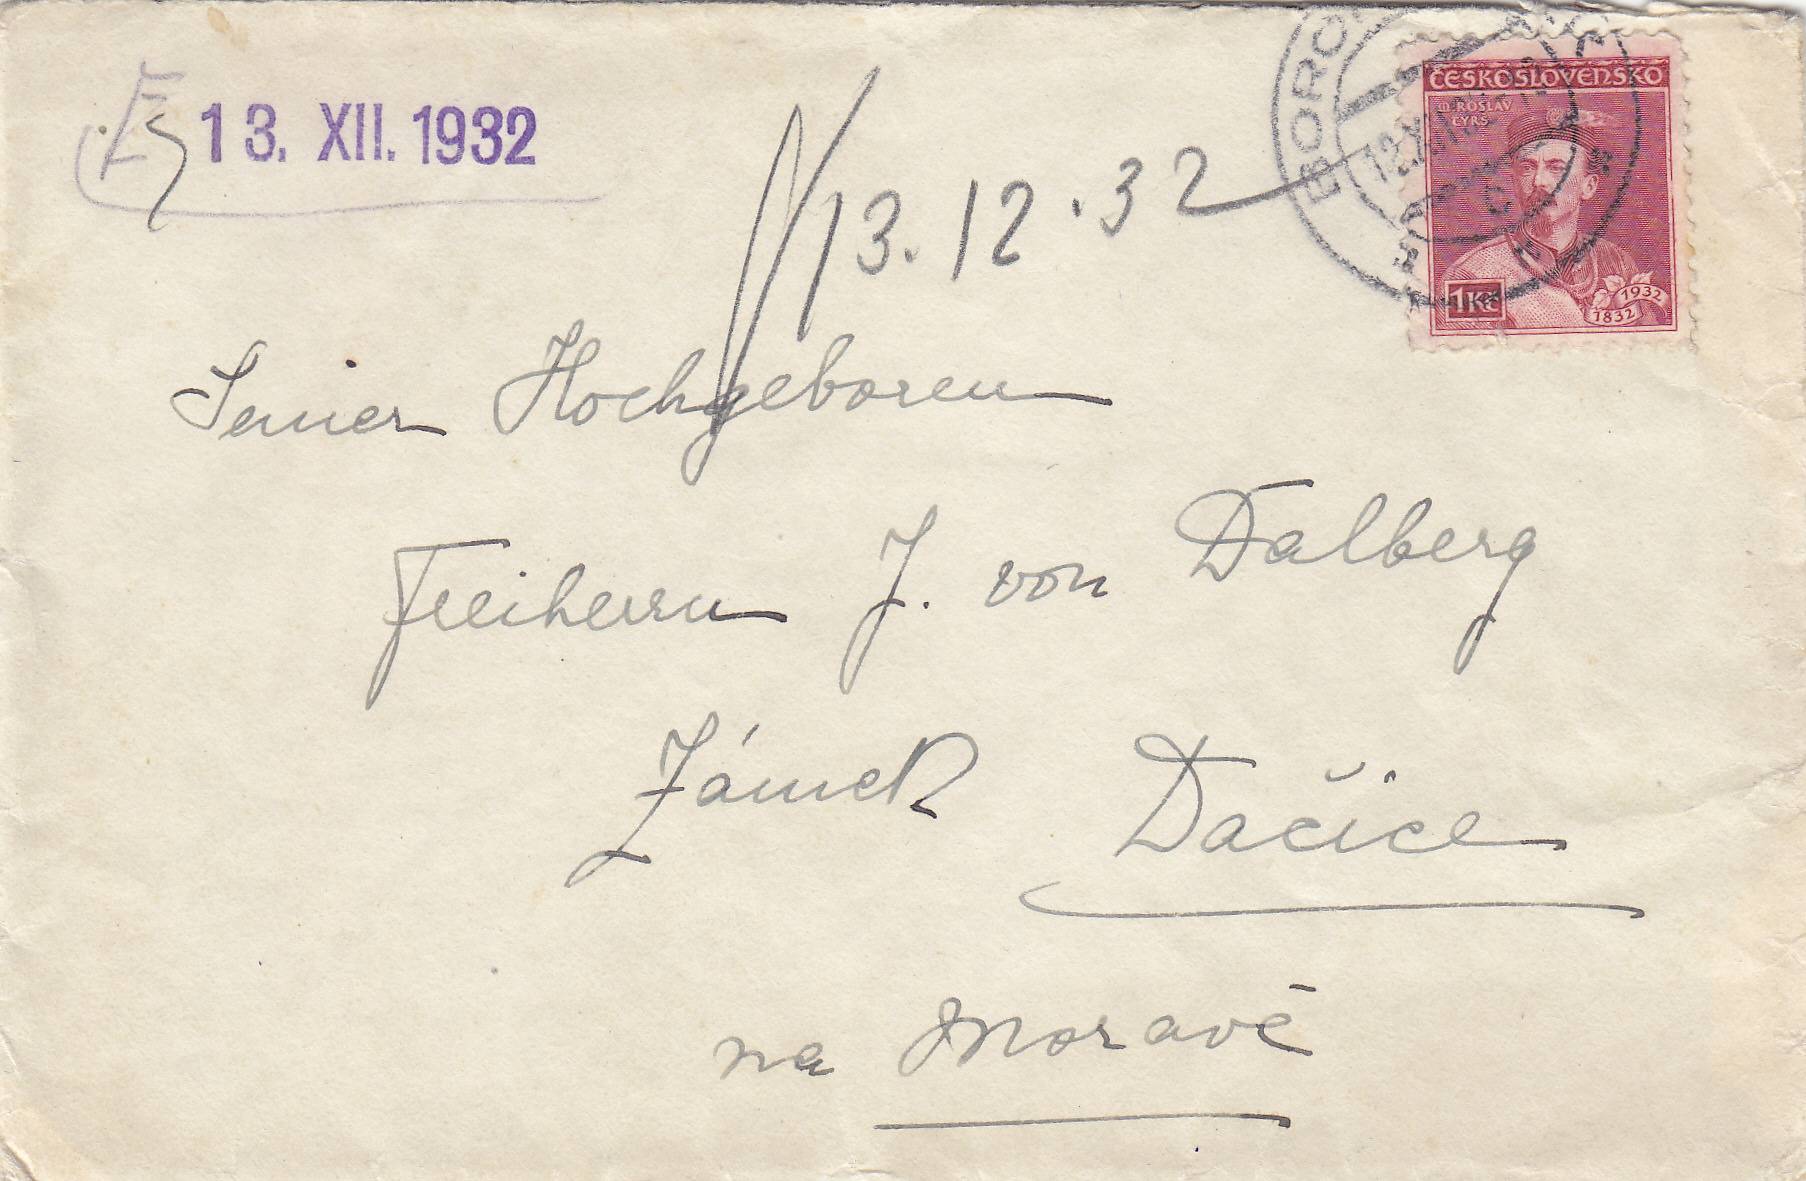 13. XII. 1932
13.12.32
ČESKOSLOVENSKO
MIROSLAV
TYRŠ
1 Kč
1932
1832
Seiner Hochgeboren
Freiherrn J. von Dalberg
Zámek Dačice
na Moravě